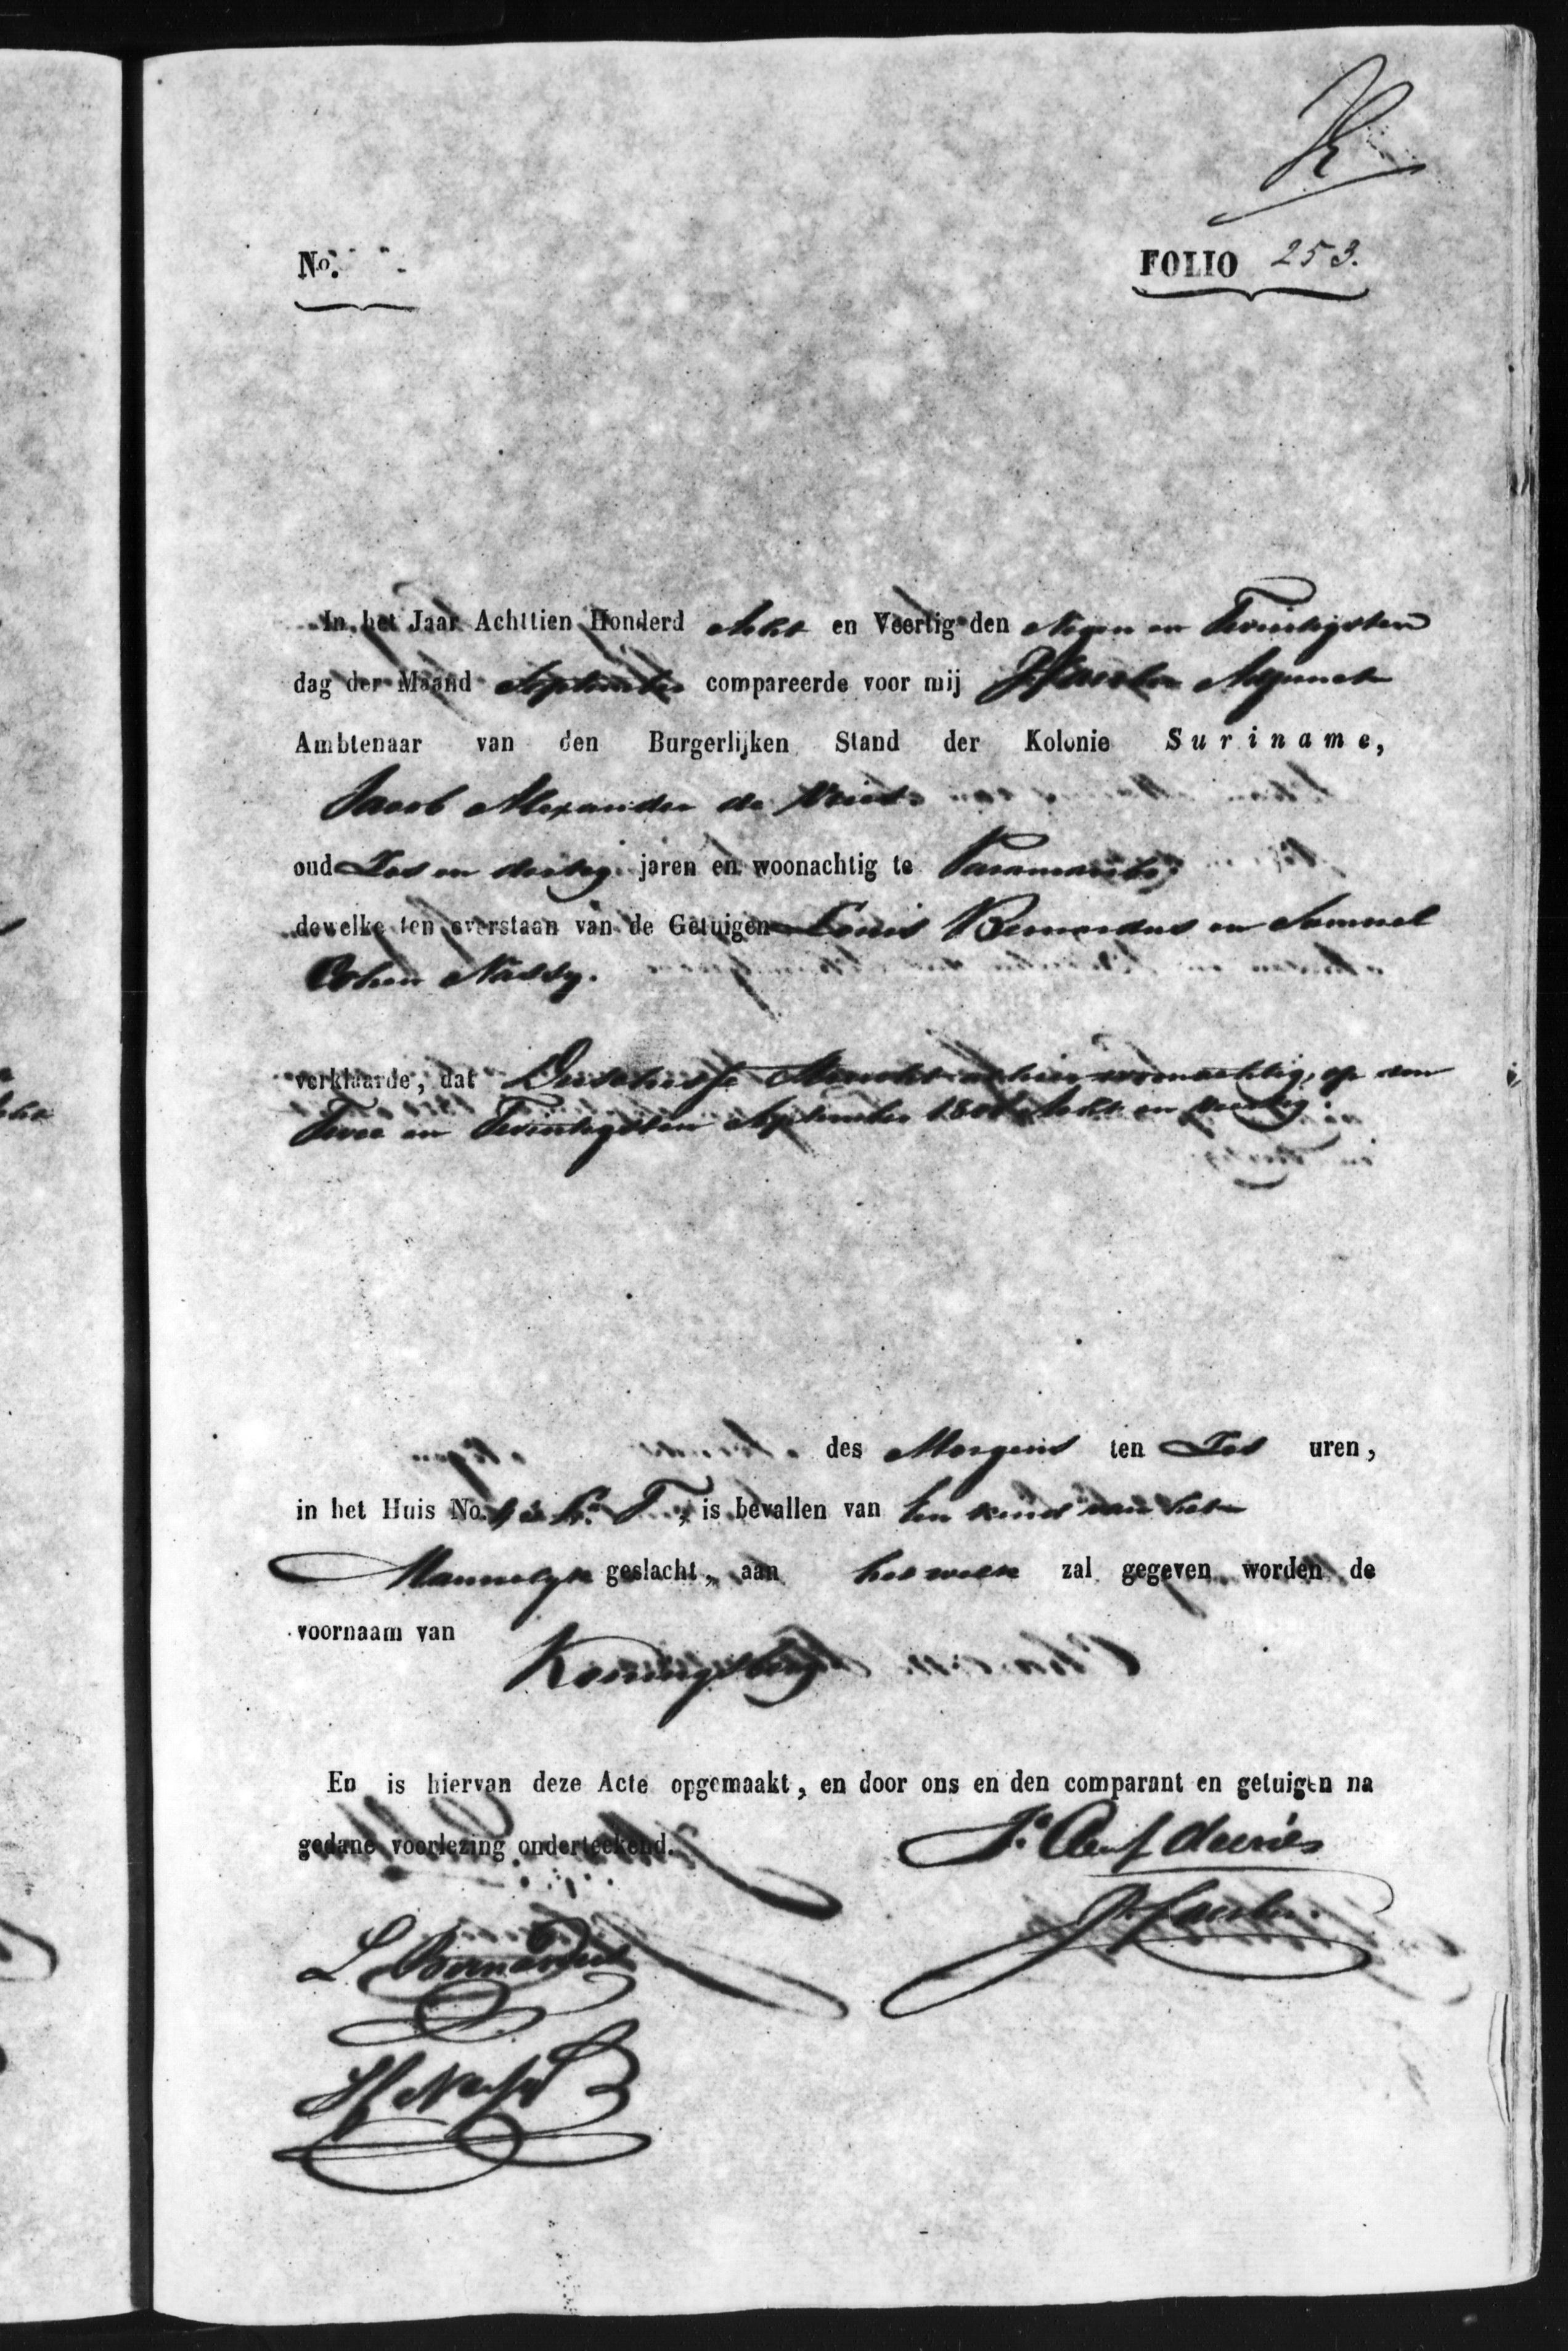 No.
FOLIO 253.
In het Jaar Achttien Honderd Acht en Veertig den Negen en Twintigsten
dag der Maand September compareerde voor mij Adjunct
Ambtenaar van den Burgerlijken Stand der Kolonie Suriname,
Jacob Alexander de Vries
oud Zes en dertig jaren en woonachtig te Paramaribo
dewelke ten overstaan van de Getuigen Louis Bernardus en Samuel
Cohen Nassy.
verklaarde, dat alhier woonachtig, op den
Twee en Twintigsten September 1800 Acht en veertig
des Morgens ten Zes uren,
in het Huis No. is bevallen van een kind van het
Mannelyk geslacht, aan het welk zal gegeven worden de
voornaam van
Koningsberg
En is hiervan deze Acte opgemaakt, en door ons en den comparant en getuigen na
gedane voorlezing onderteekend.
L. Bernardus